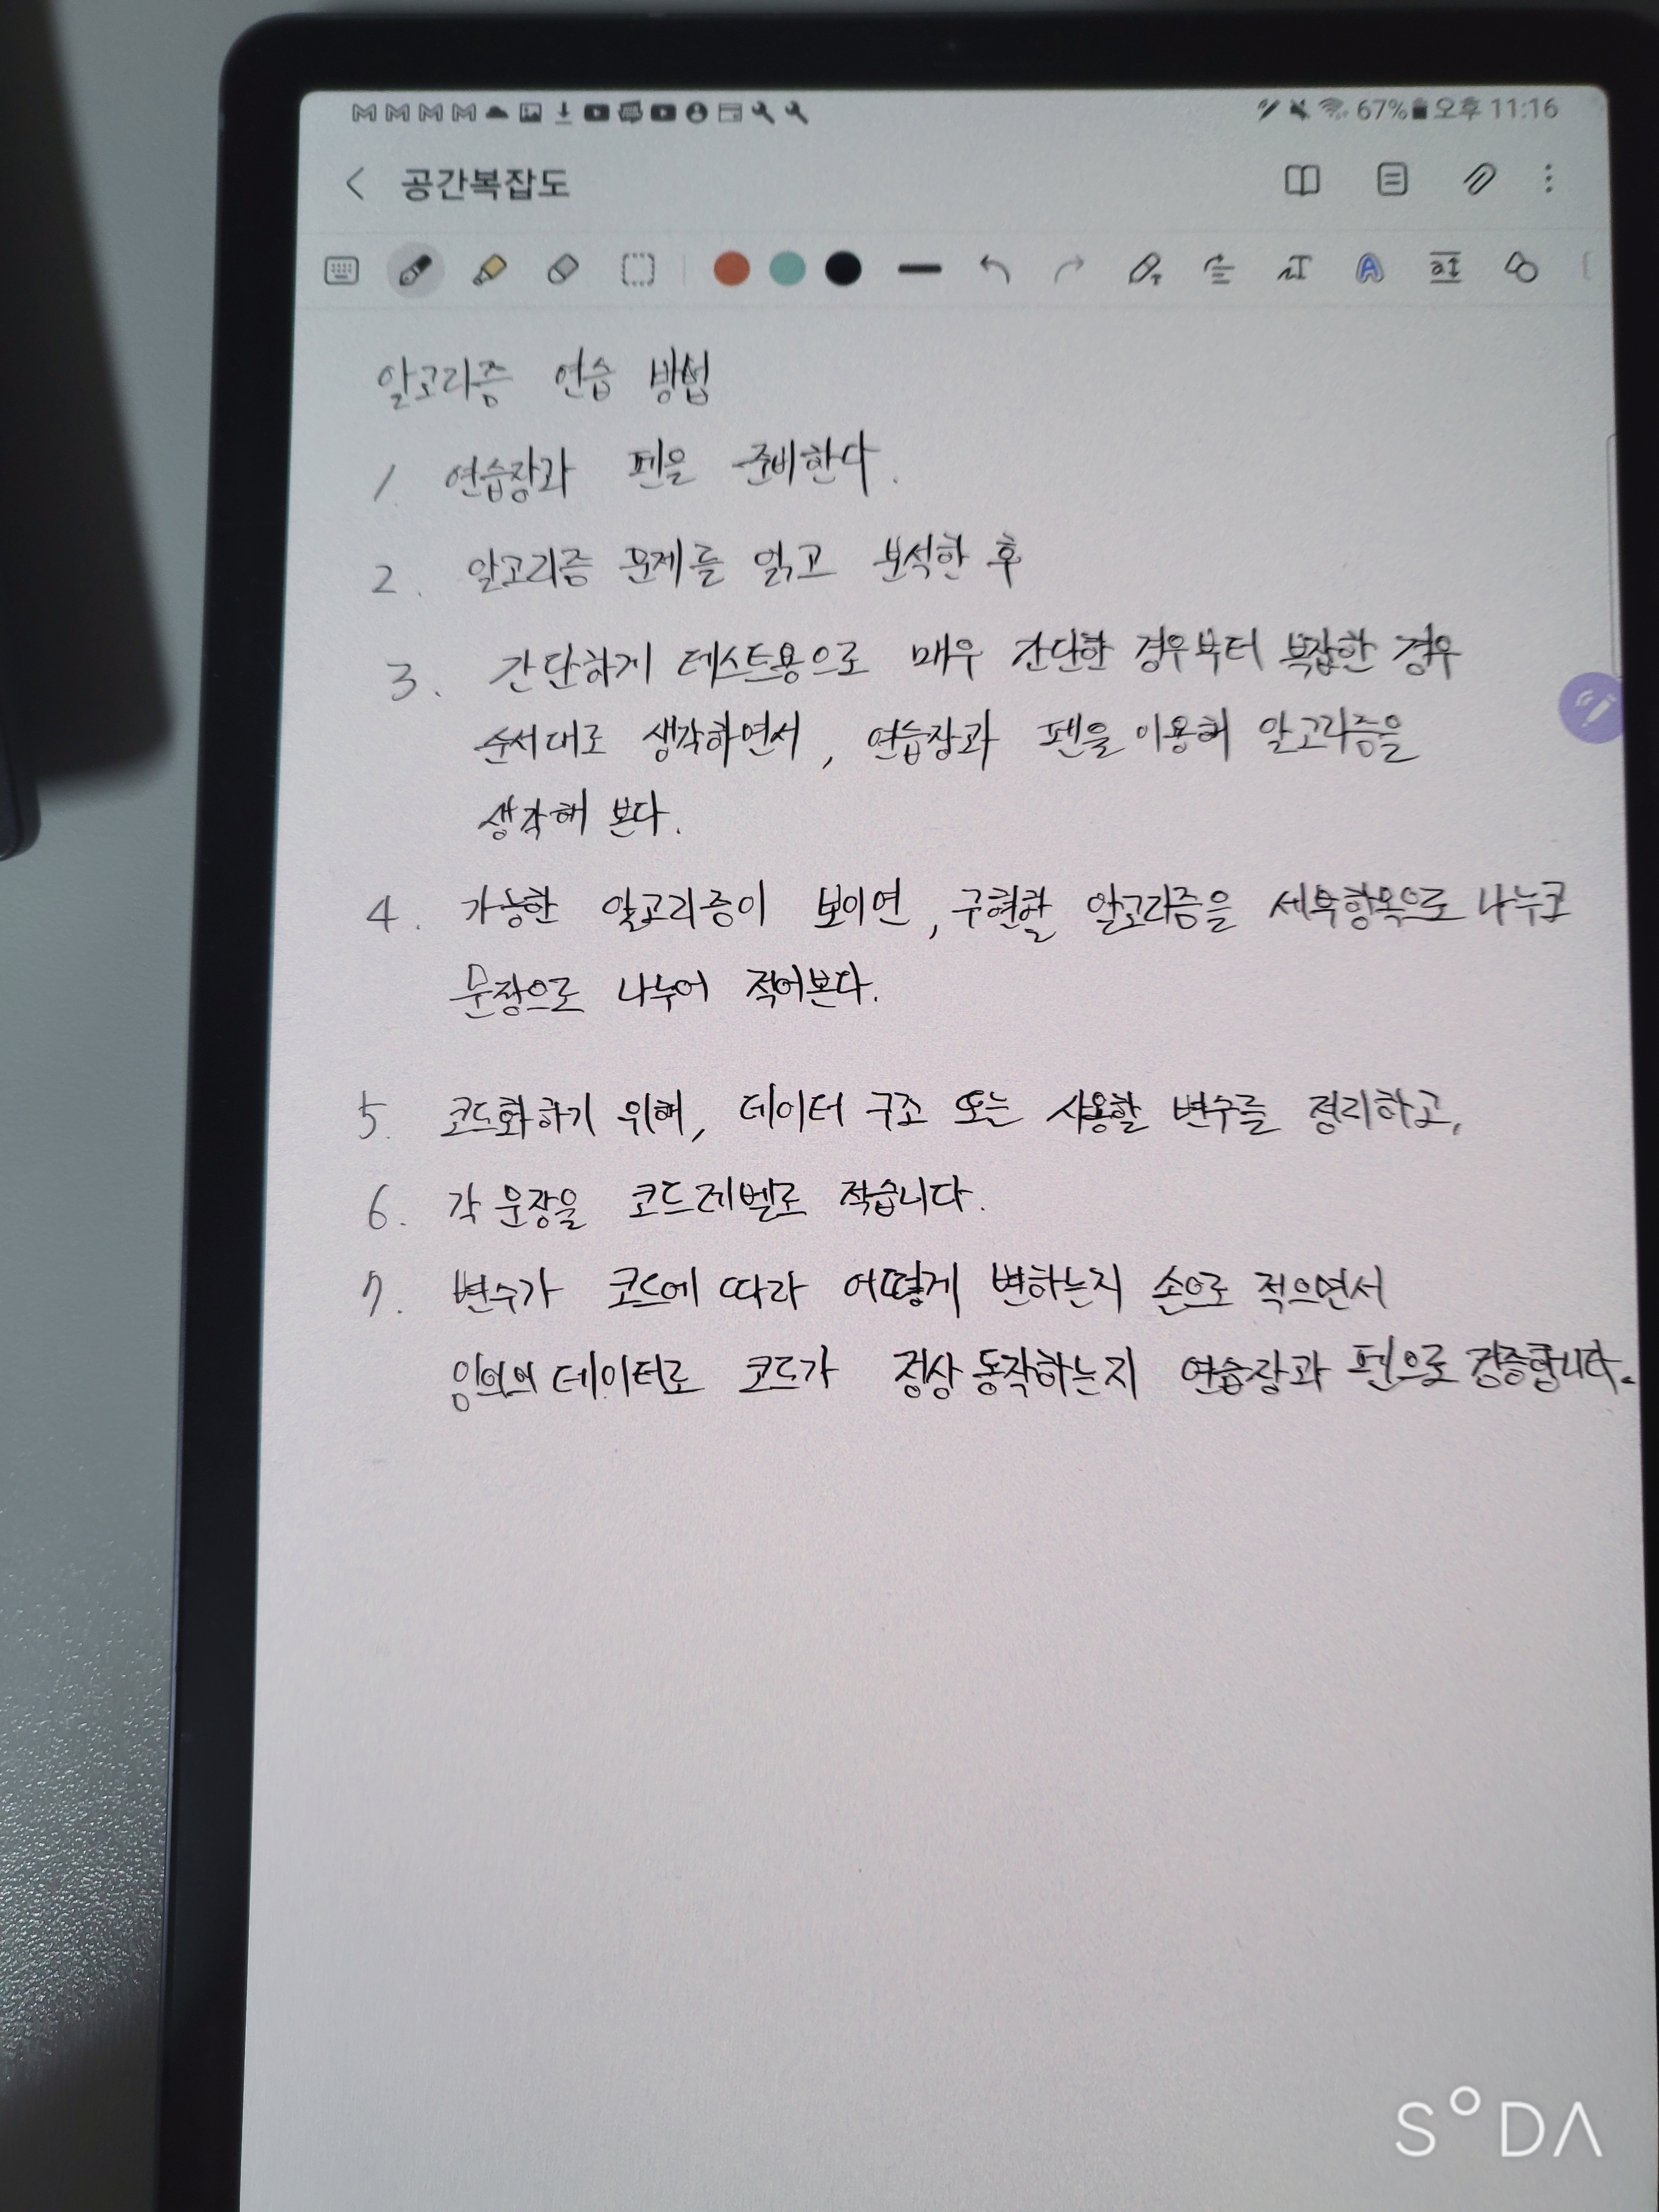 67% 오후 11:16
공간복잡도
알고리즘 연습 방법
1. 연습장과 펜을 준비한다.
2. 알고리즘 문제를 읽고 분석한 후
3. 간단하게 테스트용으로 매우 간단한 경우부터 복잡한 경우
순서대로 생각하면서, 연습장과 펜을 이용해 알고리즘을
생각해 본다.
4. 가능한 알고리즘이 보이면, 구현할 알고리즘을 세부항목으로 나누고
문장으로 나누어 적어본다.
5. 코드화하기 위해, 데이터 구조 또는 사용할 변수를 정리하고,
6. 각 문장을 코드레벨로 적습니다.
7. 변수가 코드에 따라 어떻게 변하는지 손으로 적으면서
임의의 데이터로 코드가 정상 동작하는지 연습장과 펜으로 검증합니다.
SODA